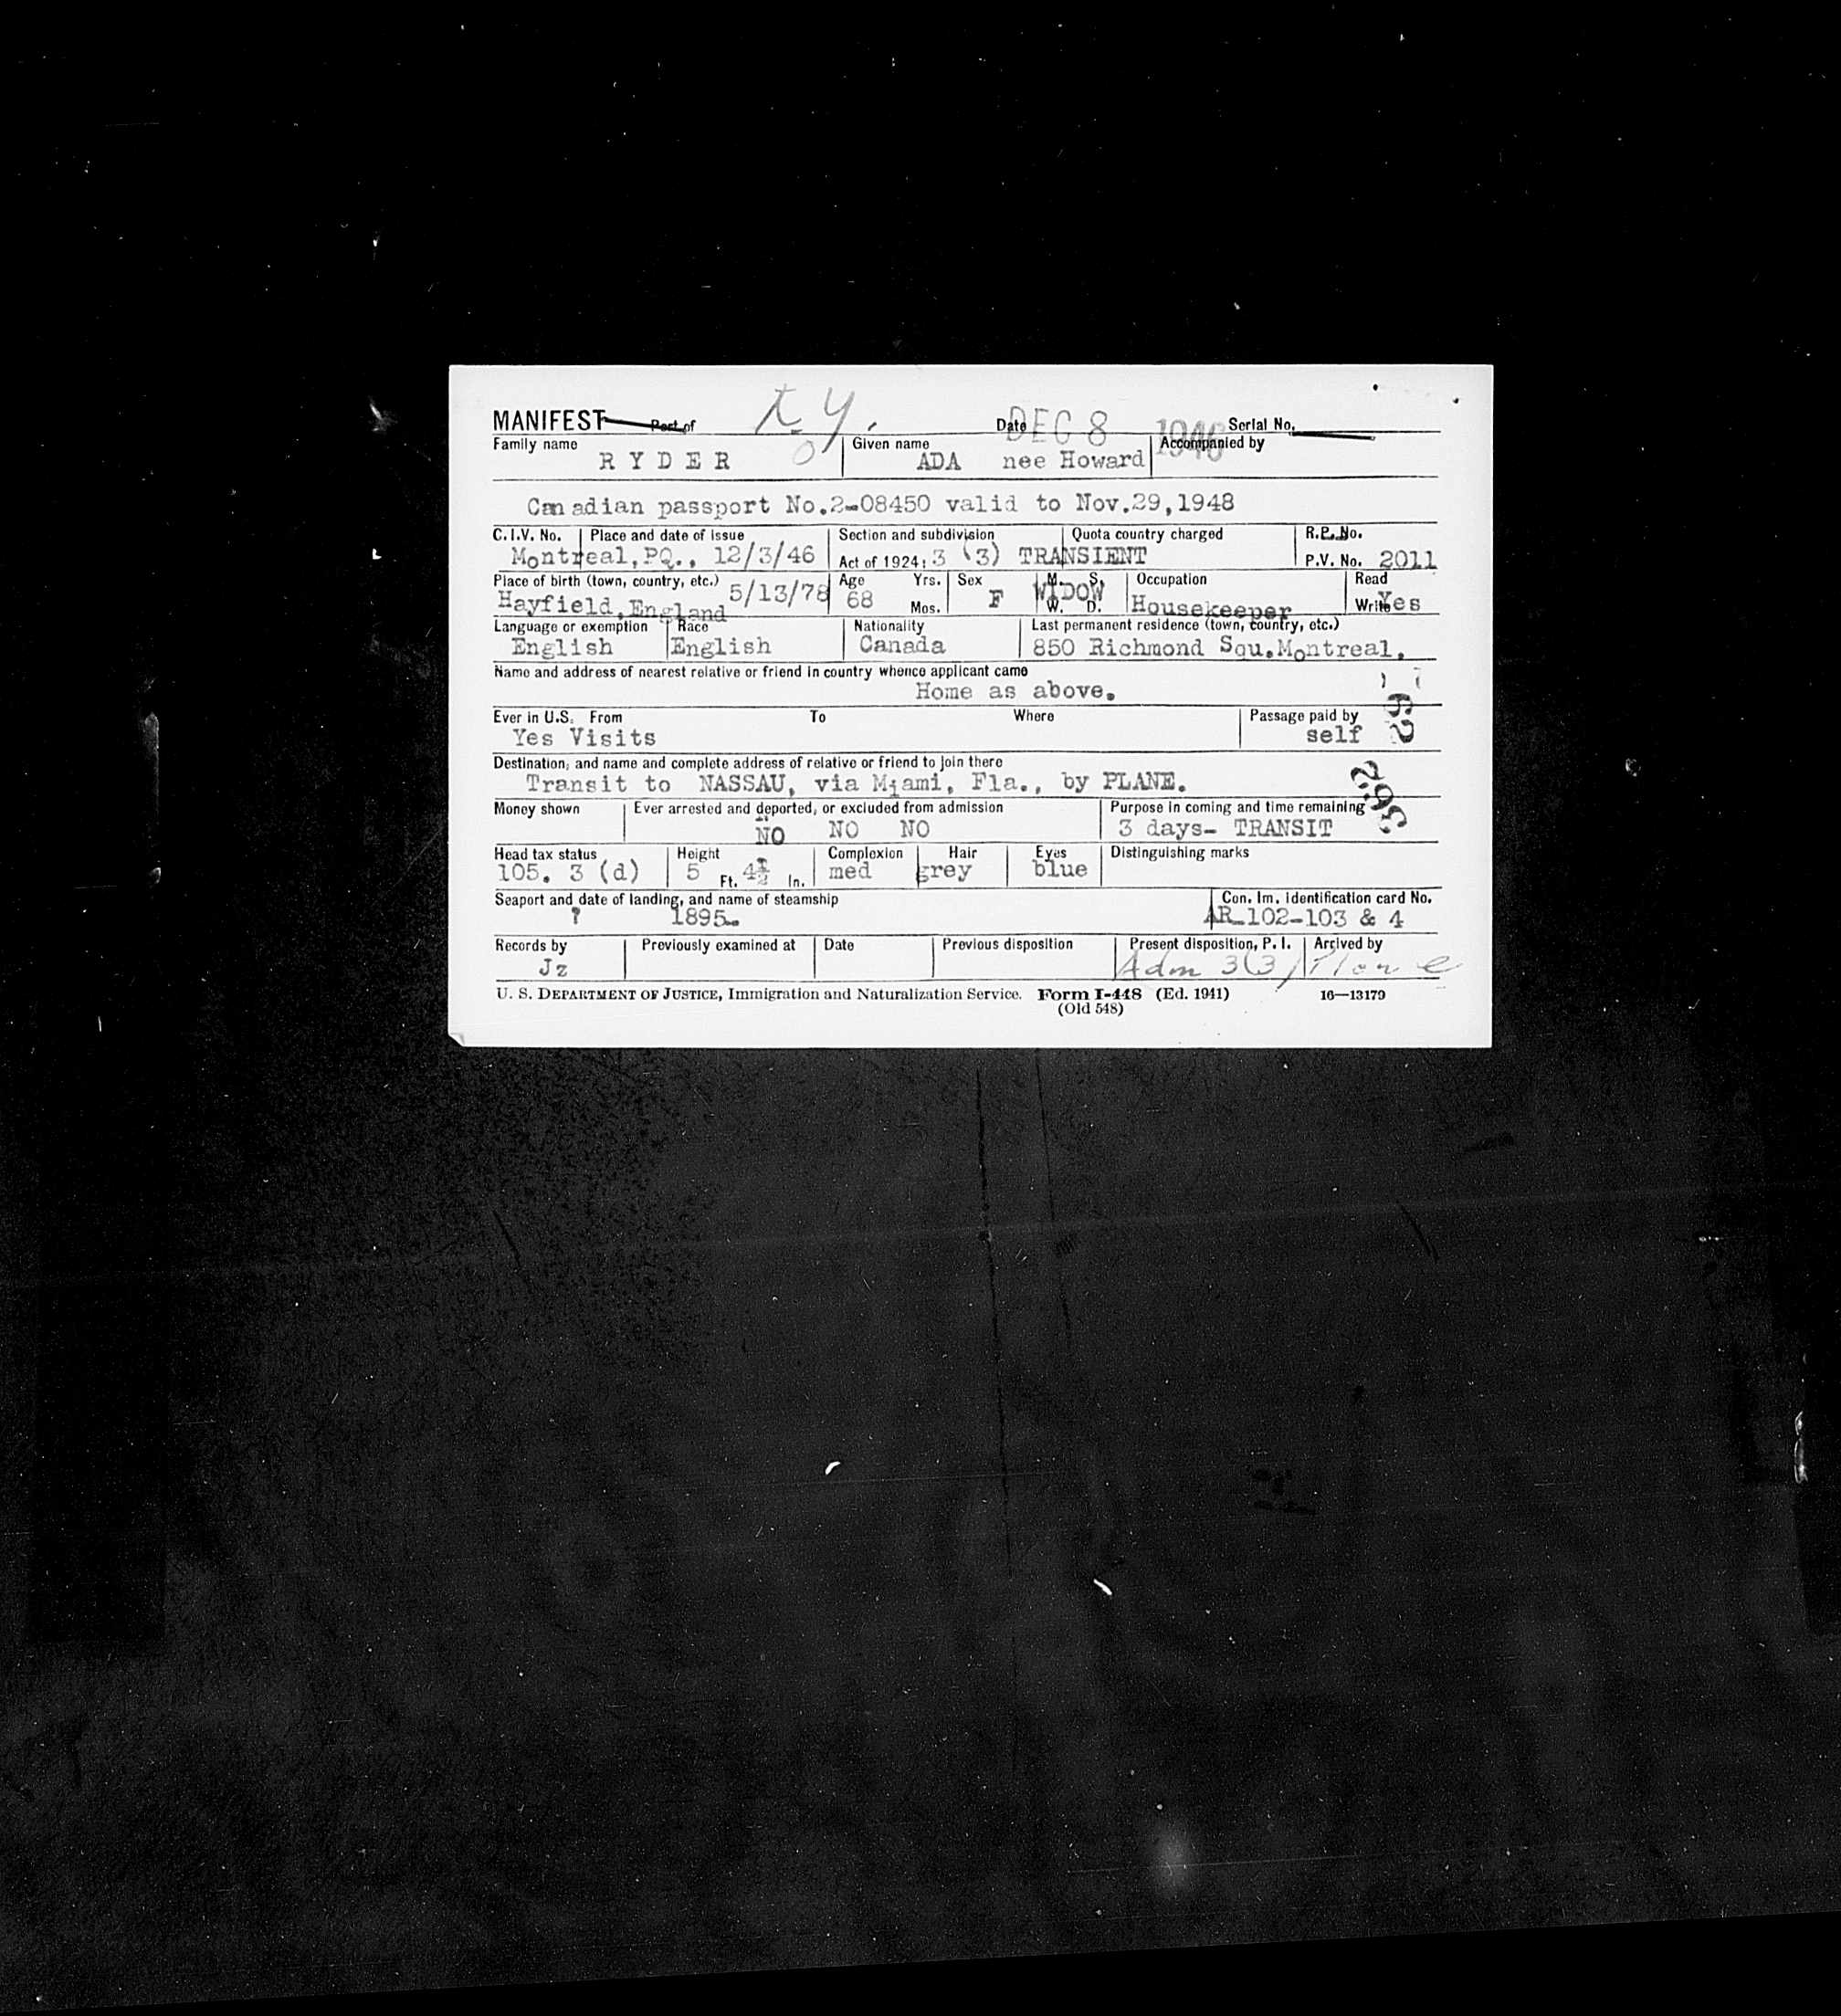 MANIFEST Port of Date DEC 8 1946 Serial No.
Family name Given name Accompanied by
RYDER ADA nee Howard
Canadian passport No.2-08450 valid to Nov.29,1948
C.I.V. No. Place and date of issue Section and subdivision Quota country charged R.P. No.
Montreal,PQ., 12/3/46 Act of 1924: 3 (3) TRANSIENT P.V. No. 2011
Place of birth (town, country, etc.) 5/13/78 Age Yrs. Sex M. S. Occupation Read
Hayfield,England 68 Mos. F WIDOW W. D. Housekeeper Write Yes
Language or exemption Race Nationality Last permanent residence (town, country, etc.)
English English Canada 850 Richmond Squ.Montreal,
Name and address of nearest relative or friend in country whence applicant came
Home as above.
Ever in U.S. From To Where Passage paid by
Yes Visits self
Destination, and name and complete address of relative or friend to join there
Transit to NASSAU, via Miami, Fla., by PLANE.
Money shown Ever arrested and deported, or excluded from admission Purpose in coming and time remaining
NO NO NO 3 days- TRANSIT
Head tax status Height Complexion Hair Eyes Distinguishing marks
105. 3 (d) 5 Ft. 4½ In. med grey blue
Seaport and date of landing, and name of steamship Con. Im. Identification card No.
? 1895. AR-102-103 & 4
Records by Previously examined at Date Previous disposition Present disposition, P. I. Arrived by
Jz Adm 3(3) Plane
U. S. DEPARTMENT OF JUSTICE, Immigration and Naturalization Service. Form I-448 (Ed. 1941) 16—13179
(Old 548)